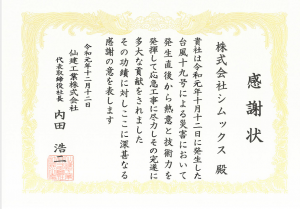 感謝状
株式会社シムックス 殿
貴社は令和元年十月十二日に発生した
台風十九号による災害において
発生直後から熱意と技術力を
発揮して応急工事に尽力しその完遂に
多大な貢献をされました
その功績に対しここに深甚なる
感謝の意を表します
令和元年十二月十二日
仙建工業株式会社
代表取締役社長
内田 浩二